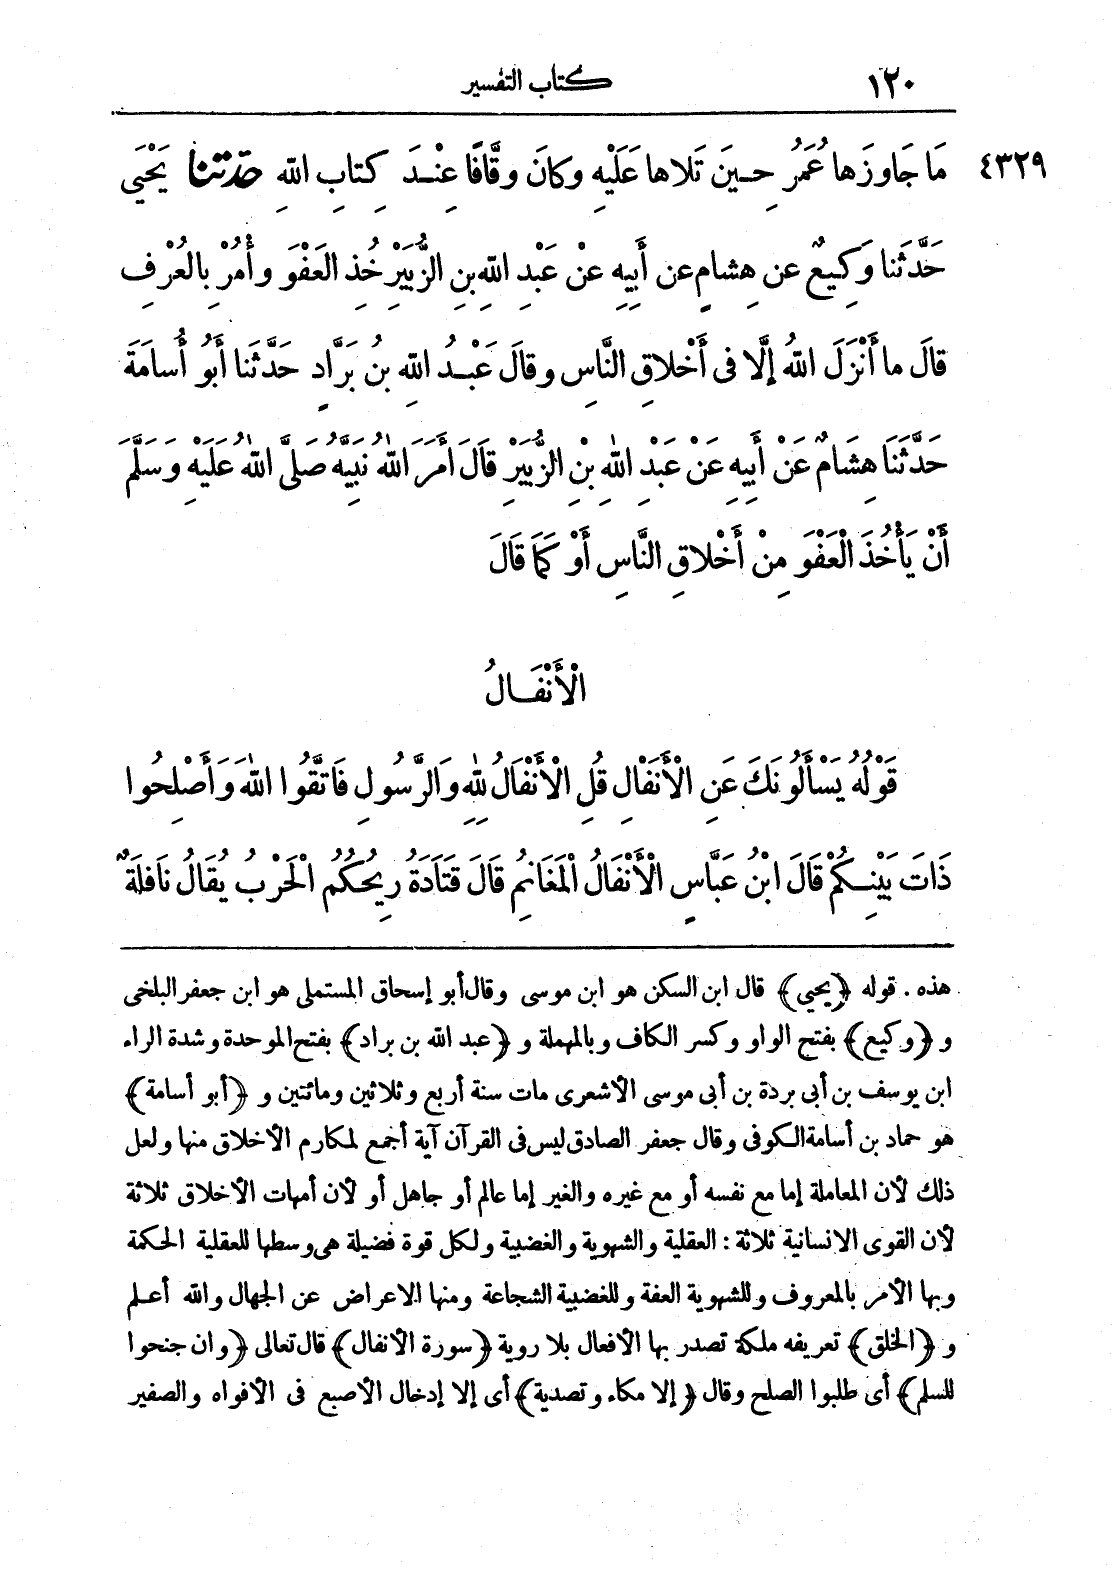 ١٢٠ كتاب التفسير
٤٣٢٩ مَا جَاوَزَها عُمَرُ حِينَ تَلاها عَلَيْهِ وكانَ وقَّافًا عِنْدَ كِتابِ اللهِ حَدَّثَنَا يَحْيَى
حَدَّثَنا وَكِيعٌ عن هِشامٍ عن أَبِيهِ عنْ عَبْدِ اللهِ بنِ الزُّبَيْرِ خُذِ العَفْوَ وأْمُرْ بِالعُرْفِ
قالَ ما أَنْزَلَ اللهُ إلَّا فى أَخْلاقِ النَّاسِ وقالَ عَبْدُ اللهِ بنُ بَرَّادٍ حَدَّثَنا أَبُو أُسامَةَ
حَدَّثَنَا هِشَامٌ عَنْ أَبِيهِ عَنْ عَبْدِ اللهِ بْنِ الزُّبَيْرِ قَالَ أَمَرَ اللهُ نَبِيَّهُ صَلَّى اللهُ عَلَيْهِ وَسَلَّمَ
أَنْ يَأْخُذَ الْعَفْوَ مِنْ أَخْلاقِ النَّاسِ أَوْ كَمَا قَالَ
الْأَنْفَالُ
قَوْلُهُ يَسْأَلُونَكَ عَنِ الْأَنْفَالِ قُلِ الْأَنْفَالُ لِلّٰهِ وَالرَّسُولِ فَاتَّقُوا اللهَ وَأَصْلِحُوا
ذَاتَ بَيْنِكُمْ قَالَ ابْنُ عَبَّاسٍ الْأَنْفَالُ الْمَغَانِمُ قَالَ قَتَادَةُ رِيحُكُمُ الْحَرْبُ يُقَالُ نَافِلَةٌ
هذه . قوله ﴿يحيى﴾ قال ابن السكن هو ابن موسى وقال أبو إسحاق المستملى هو ابن جعفر البلخى
و ﴿وكيع﴾ بفتح الواو وكسر الكاف وبالمهملة و ﴿عبد الله بن براد﴾ بفتح الموحدة وشدة الراء
ابن يوسف بن أبى بردة بن أبى موسى الأشعرى مات سنة أربع وثلاثين ومائتين و ﴿أبو أسامة﴾
هو حماد بن أسامة الكوفى وقال جعفر الصادق ليس فى القرآن آية أجمع لمكارم الأخلاق منها ولعل
ذلك لأن المعاملة إما مع نفسه أو مع غيره والغير إما عالم أو جاهل أو لأن أمهات الأخلاق ثلاثة
لأن القوى الانسانية ثلاثة : العقلية والشهوية والغضبية ولكل قوة فضيلة هى وسطها للعقلية الحكمة
وبها الأمر بالمعروف وللشهوية العفة وللغضبية الشجاعة ومنها الاعراض عن الجهال والله أعلم
و ﴿الخلق﴾ تعريفه ملكة تصدر بها الأفعال بلا روية ﴿سورة الأنفال﴾ قال تعالى ﴿وان جنحوا
للسلم﴾ أى طلبوا الصلح وقال ﴿إلا مكاء وتصدية﴾ أى إلا إدخال الأصبع فى الأفواه والصفير